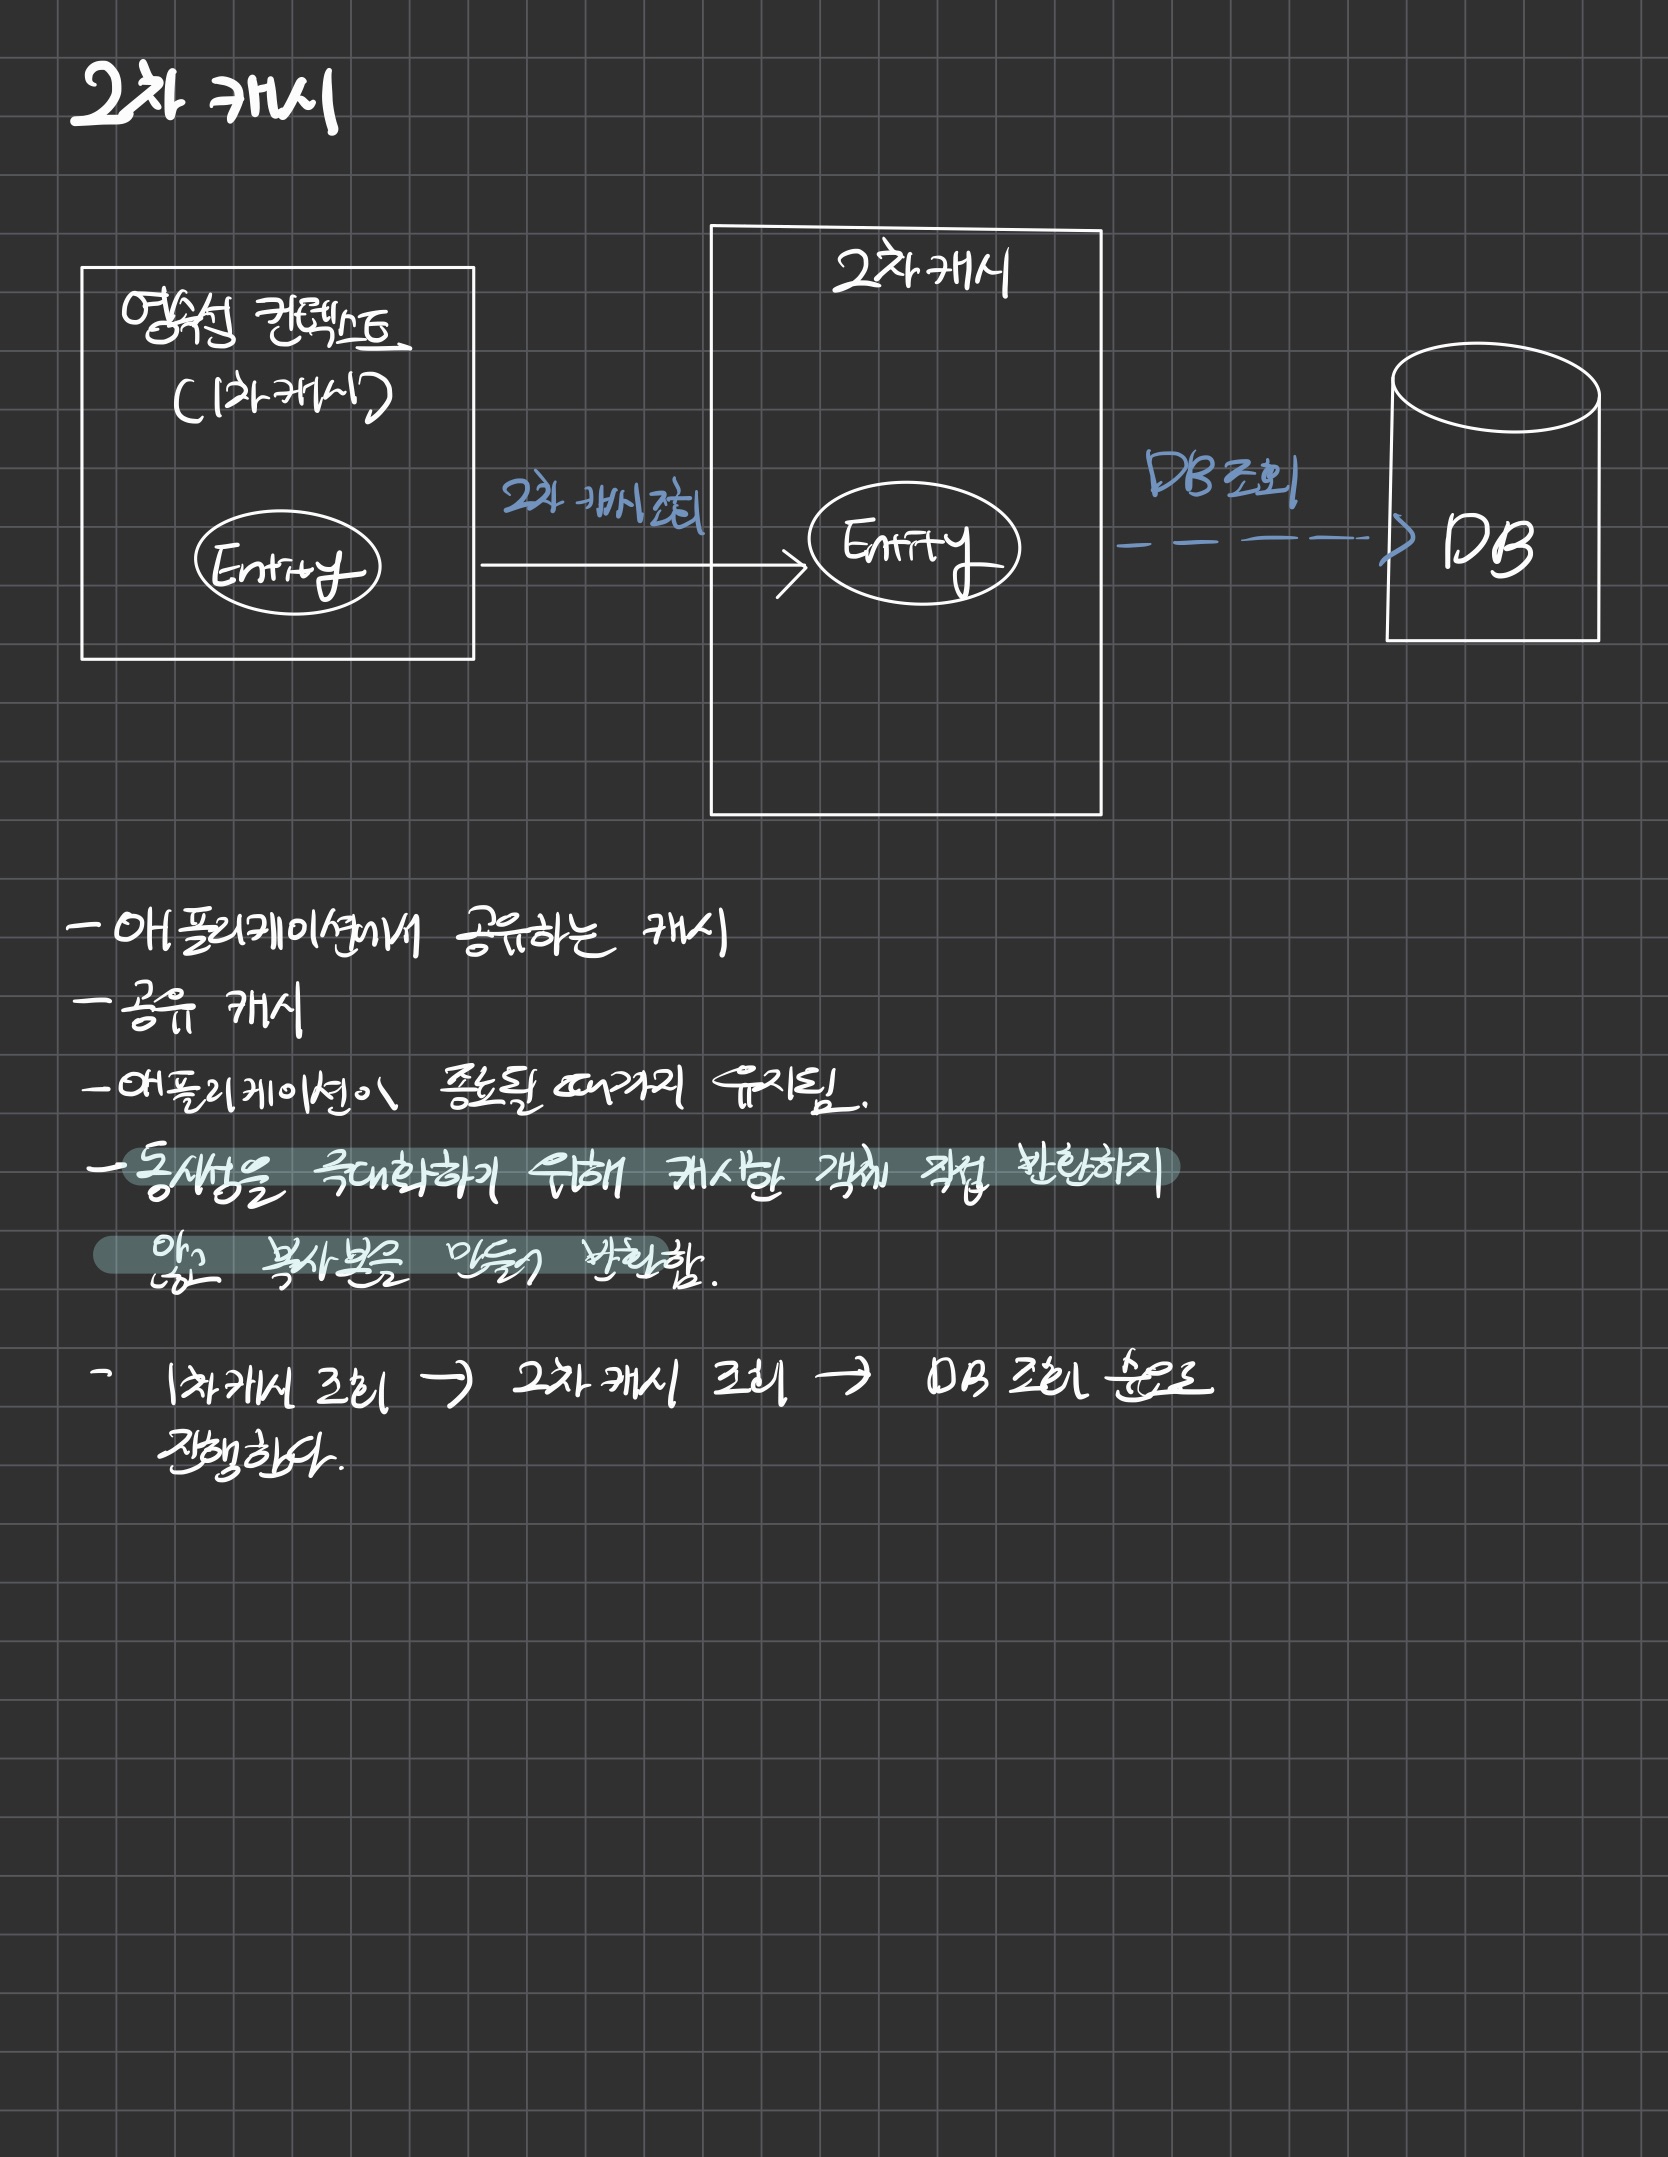 2차 캐시
영속성 컨텍스트
(1차캐시)
Entity
2차 캐시 조회
2차 캐시
Entity
DB 조회
DB
- 애플리케이션에서 공유하는 캐시
- 공유 캐시
- 애플리케이션이 종료될 때까지 유지됨.
- 동시성을 극대화하기 위해 캐시한 객체 직접 반환하지
않고 복사본을 만들어 반환함.
- 1차캐시 조회 → 2차 캐시 조회 → DB 조회 순으로
진행한다.